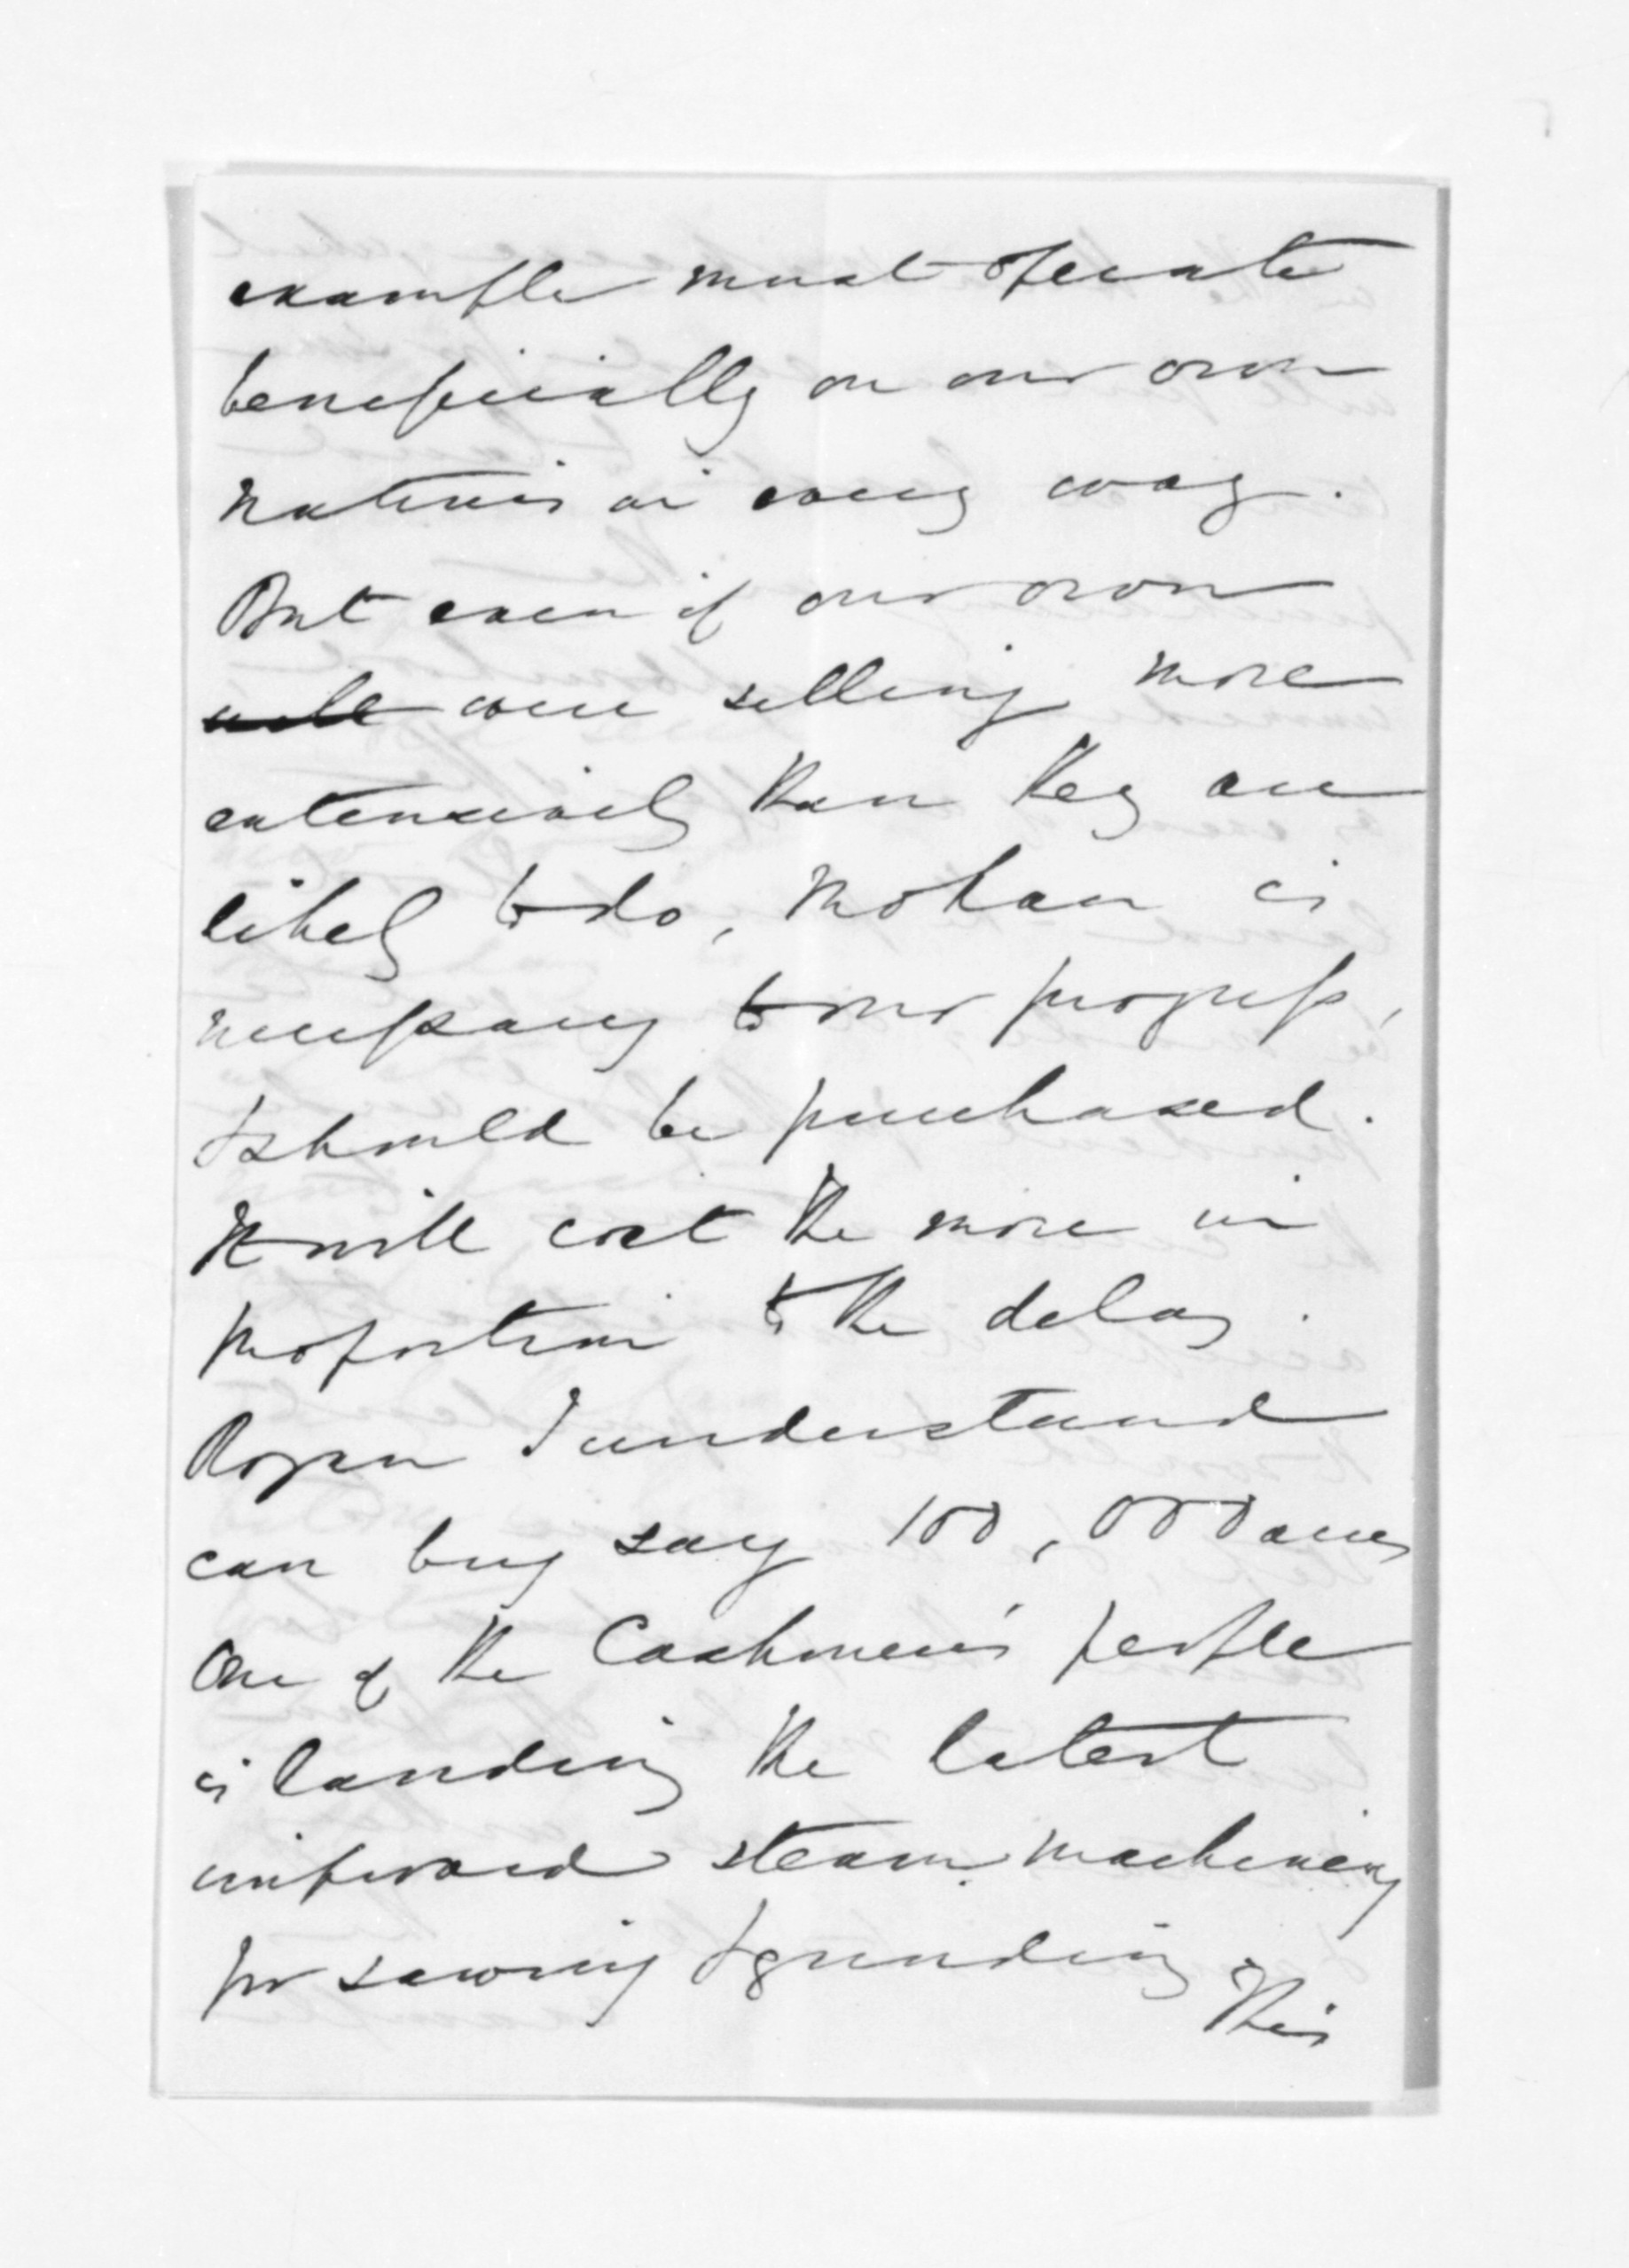 example must operate
beneficially on our own
natives in every way.
But even if our own
will were selling more
extensively than they are
likely to do, Mohaka is
necessary to our progress,
& should be purchased.
It will cost the more in
proportion to the delay.
Rogan I understand
can buy say 100,000 acres
One of the Cashmere's people
is landing the latest
improved steam machinery
for sawing & grinding
This